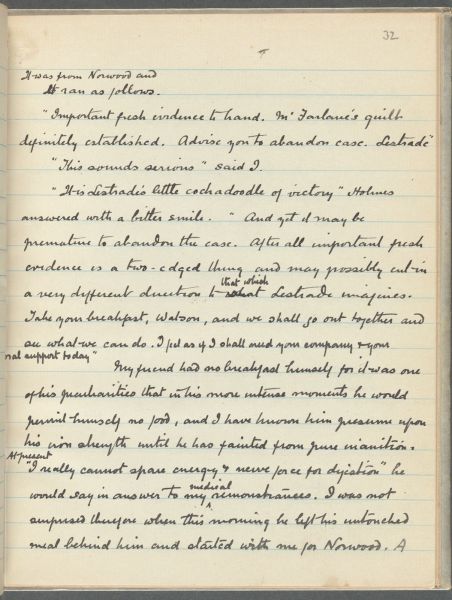 32
It was from Norwood and
It ran as follows.
"Important fresh evidence to hand. McFarlane's guilt
definitely established. Advise you to abandon case. Lestrade"
"This sounds serious" said I.
"It is Lestrade's little cockadoodle of victory" Holmes
answered with a bitter smile. "And yet it may be
premature to abandon the case. After all important fresh
evidence is a two-edged thing and may possibly cut in
a very different direction to that which Lestrade imagines.
Take your breakfast, Watson, and we shall go out together and
see what we can do. I feel as if I shall need your company & your
moral support today"
My friend had no breakfast himself for it was one
of his peculiarities that in his more intense moments he would
permit himself no food, and I have known him presume upon
his iron strength until he has fainted from pure inanition.
"At present I really cannot spare energy & nerve force for digestion" he
would say in answer to my medical remonstrances. I was not
surprised therefore when this morning he left his untouched
meal behind him and started with me for Norwood. A